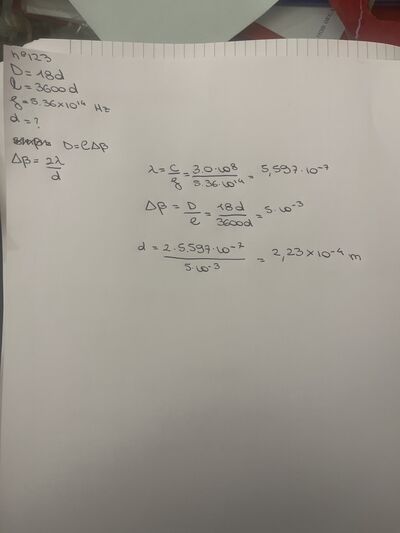 nº123
D = 18d
l = 3600d
f = 5.36×10¹⁴ Hz
d = ?
D = lΔβ
Δβ = 2λ/d
λ = c/f = 3.0·10⁸/5.36·10¹⁴ = 5,597·10⁻⁷
Δβ = D/l = 18d/3600d = 5·10⁻³
d = 2·5.597·10⁻⁷/5·10⁻³ = 2,23×10⁻⁴ m